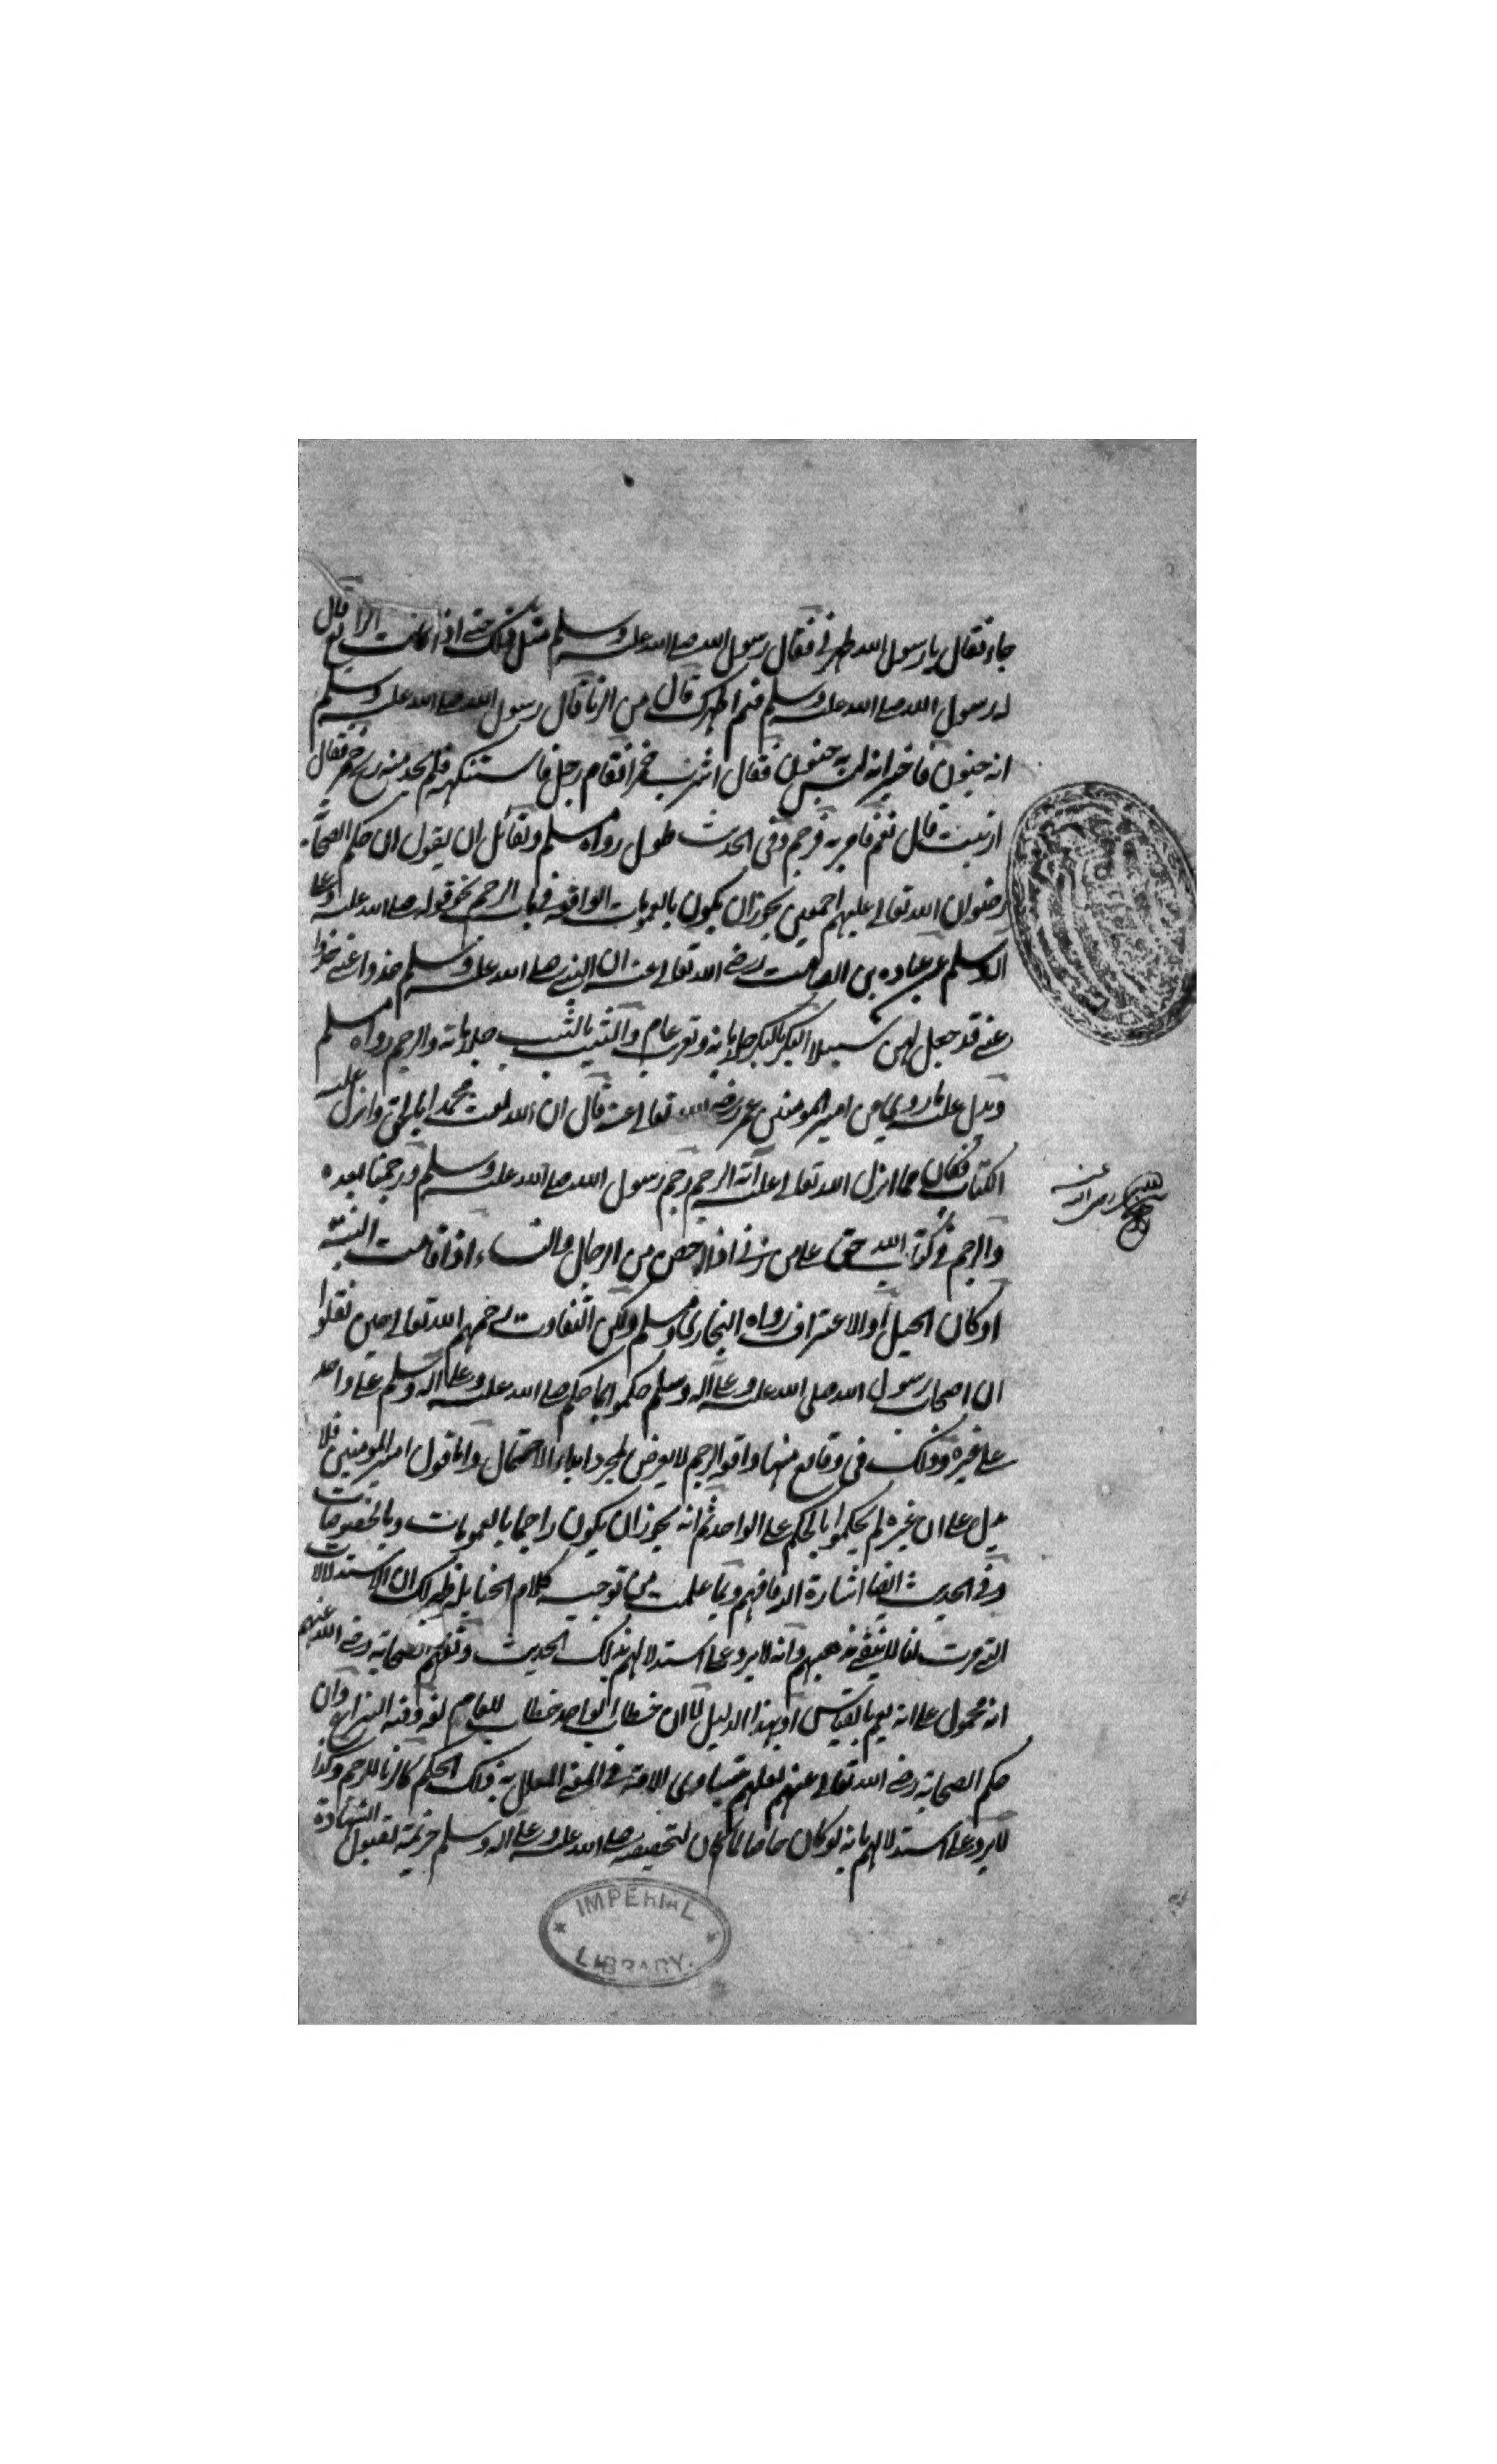 جاء فقال يا رسول الله طهرني فقال رسول الله صلى الله عليه وسلم مثل ذلك حتى اذا كانت الرابعة قال
له رسول الله صلى الله عليه وسلم فيم اطهرك قال من الزنا قال رسول الله صلى الله عليه وسلم
انه جنون فاخبر انه ليس به جنون فقال اشرب خمرا فقام رجل فاستنكهه فلم يجد منه ريح خمر فقال
ازنيت قال نعم فامر به فرجم وفي الحديث طول رواه مسلم ولقائل ان يقول ان حكم الصحابة
رضوان الله تعالى عليهم اجمعين يجوز ان يكون بالعمومات الواقعة في باب الرجم نحو قوله صلى الله عليه وعلى
اله وسلم عن عباده بن الصامت رضي الله تعالى عنه ان النبي صلى الله عليه وسلم خذوا عني خذوا
عني قد جعل لهن سبيلا البكر بالبكر جلد مائة وتغريب عام والثيب بالثيب جلد مائة والرجم رواه مسلم
ويدل عليه ما روي عن امير المومنين عمر رضي الله تعالى عنه قال ان الله بعث محمدا بالحق وانزل عليه
الكتاب فكان مما انزل الله تعالى عليه آية الرجم رجم رسول الله صلى الله عليه وسلم ورجمنا بعده
والرجم في كتاب الله حق على من زنى اذا احصن من الرجال والنساء اذا قامت البينة
او كان الحبل او الاعتراف رواه البخاري ومسلم ولكن الثقات رحمهم الله تعالى حين نقلوا
ان اصحاب رسول الله صلى الله عليه وعلى اله وسلم حكموا بما حكم صلى الله عليه وعلى اله وسلم على واحد
على غيره وذلك في وقائع منها واقعة الرجم لا يعرض بمجرد ابداء الاحتمال واما قول امير المومنين فلا
يدل على ان غيره لم يحكموا بالحكم على الواحد ثم انه يجوز ان يكون راجما بالعمومات وبالخصوصيات
وفي الحديث ايضا اشارة اليه فافهم وبما علمت من توجيه كلام الحنابلة ظهر لك ان الاستدلالات
التي مرت لنا لا ينفي مذهبهم وانه لا يرد على استدلالهم بذلك الحديث وبفهم الصحابة رضي الله عنهم
انه محمول على انه يعم بالقياس او بهذا الدليل لا ان خطاب الواحد خطاب للعام لغة وفيه النزاع وان
حكم الصحابة رضي الله تعالى عنهم لعلهم بتساوي الامة في المعنى المعلل به ذلك الحكم كالزنا للرجم وكذا
لا يرد على استدلالهم بانه لو كان خاصا لما كان لتخصيصه صلى الله عليه وعلى اله وسلم خزيمة بقبول الشهادة
IMPERIAL
LIBRARY.